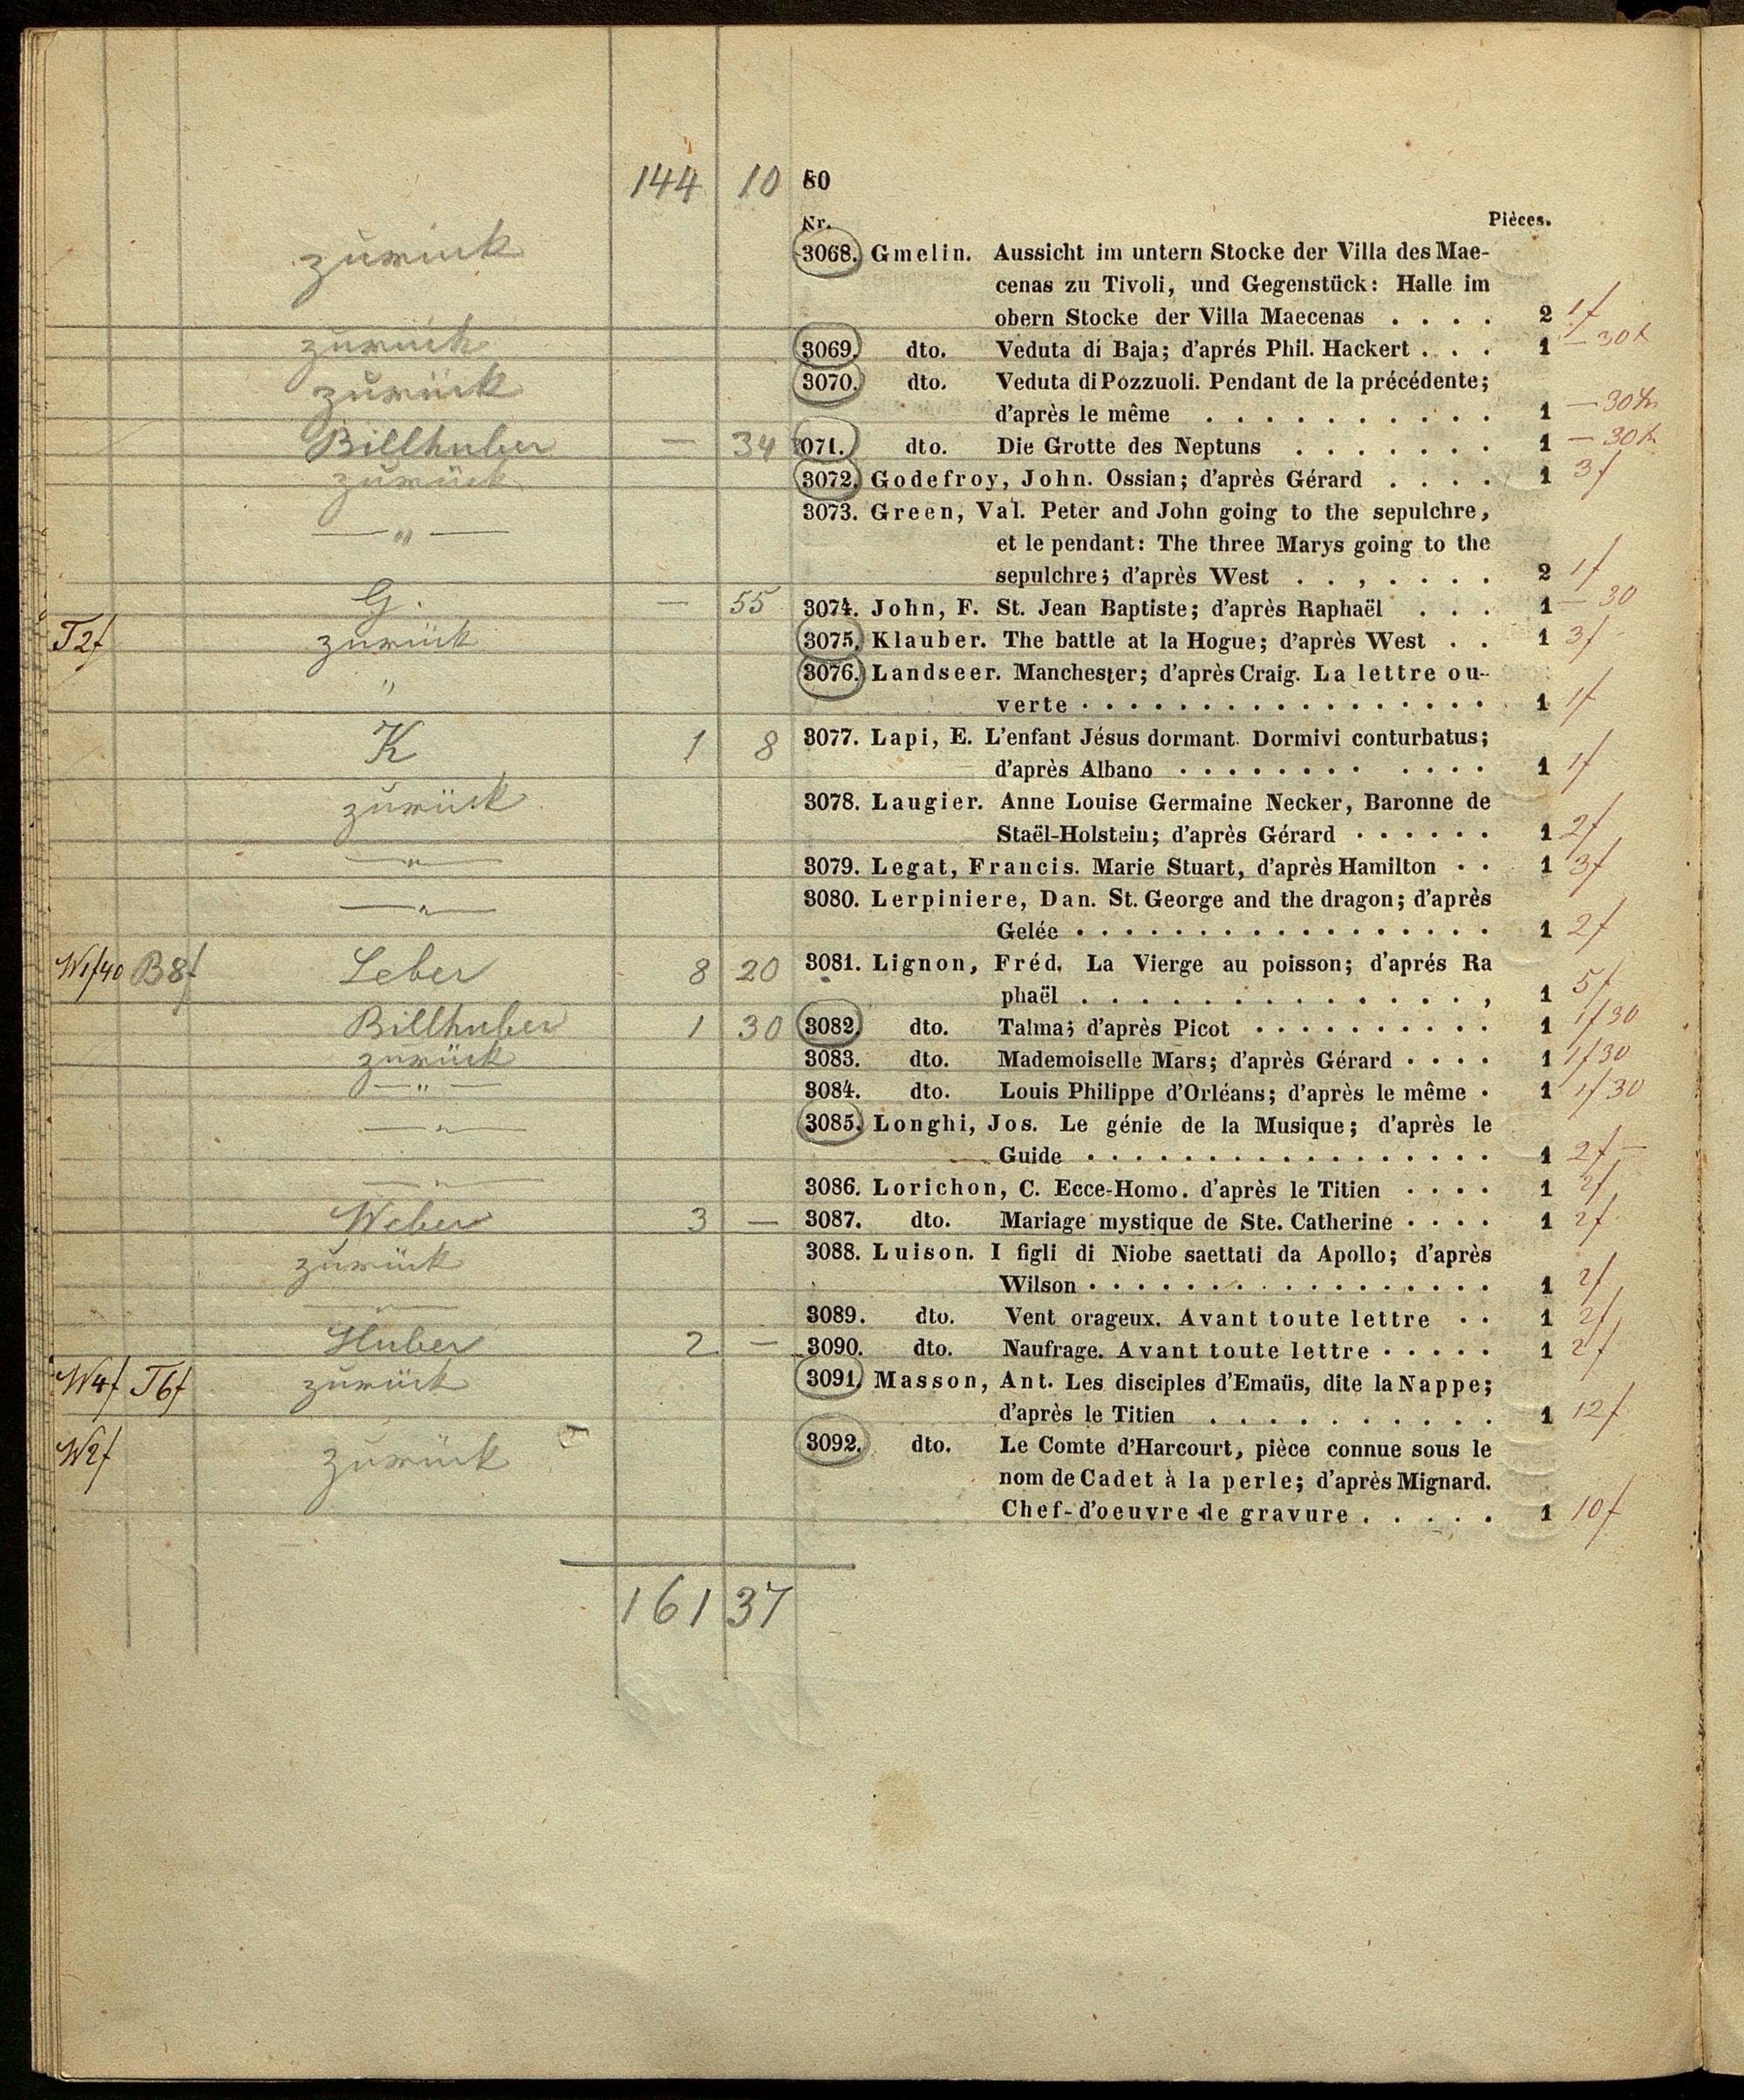 144 10 80
Nr. Pièces.
zurück 3068. Gmelin. Aussicht im untern Stocke der Villa des Mae-
cenas zu Tivoli, und Gegenstück: Halle im
obern Stocke der Villa Maecenas . . . . 2 1f
zurück 3069. dto. Veduta di Baja; d'aprés Phil. Hackert . . . 1 — 30 k
zurück 3070. dto. Veduta di Pozzuoli. Pendant de la précédente;
d'après le même . . . . . . . . . . 1 — 30 k
Billhuber — 34 3071. dto. Die Grotte des Neptuns . . . . . . . 1 — 30 k
zurück 3072. Godefroy, John. Ossian; d'après Gérard . . . . 1 3f
— " — 3073. Green, Val. Peter and John going to the sepulchre,
et le pendant: The three Marys going to the
sepulchre; d'après West . . , . . . . 2 1f
G. — 55 3074. John, F. St. Jean Baptiste; d'après Raphaël . . . 1 — 30
T2f zurück 3075. Klauber. The battle at la Hogue; d'après West . . 1 3f
" 3076. Landseer. Manchester; d'après Craig. La lettre ou-
verte . . . . . . . . . . . . . . . . . 1 1f
K 1 8 3077. Lapi, E. L'enfant Jésus dormant. Dormivi conturbatus;
d'après Albano . . . . . . . . . . . . 1 1f
zurück 3078. Laugier. Anne Louise Germaine Necker, Baronne de
Staël-Holstein; d'après Gérard . . . . . . 1 2f
— " — 3079. Legat, Francis. Marie Stuart, d'après Hamilton . . 1 3f
— " — 3080. Lerpiniere, Dan. St. George and the dragon; d'après
Gelée . . . . . . . . . . . . . . . . . 1 2f
W1f40 B8f Leber 8 20 3081. Lignon, Fréd. La Vierge au poisson; d'aprés Ra
phaël . . . . . . . . . . . . . . , 1 5f
Billhuber 1 30 3082. dto. Talma; d'après Picot . . . . . . . . . . 1 1f30
zurück 3083. dto. Mademoiselle Mars; d'après Gérard . . . . 1 1f30
— " — 3084. dto. Louis Philippe d'Orléans; d'après le même . 1 1f30
— " — 3085. Longhi, Jos. Le génie de la Musique; d'après le
Guide . . . . . . . . . . . . . . . . . 1 2f —
— " — 3086. Lorichon, C. Ecce-Homo. d'après le Titien . . . . 1 2f
Weber 3 — 3087. dto. Mariage mystique de Ste. Catherine . . . . 1 2f
zurück 3088. Luison. I figli di Niobe saettati da Apollo; d'après
Wilson . . . . . . . . . . . . . . . . . 1 2f
— " — 3089. dto. Vent orageux. Avant toute lettre . . 1 2f
Huber 2 — 3090. dto. Naufrage. Avant toute lettre . . . . . 1 2f
W4f T6f zurück 3091. Masson, Ant. Les disciples d'Emaüs, dite la Nappe;
d'après le Titien . . . . . . . . . . 1 12f
W2f zurück 3092. dto. Le Comte d'Harcourt, pièce connue sous le
nom de Cadet à la perle; d'après Mignard.
Chef-d'oeuvre de gravure . . . . . 1 10f
161 37